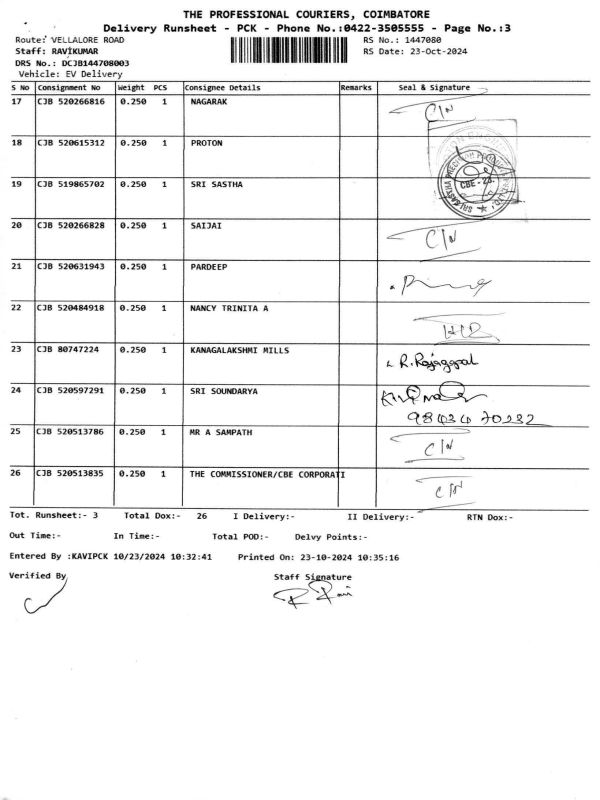 THE PROFESSIONAL COURIERS, COIMBATORE
Delivery Runsheet - PCK - Phone No.:0422-3505555 - Page No.:3
Route: VELLALORE ROAD RS No.: 1447080
Staff: RAVIKUMAR RS Date: 23-Oct-2024
DRS No.: DCJB144708003
Vehicle: EV Delivery
S No Consignment No Weight PCS Consignee Details Remarks Seal & Signature
17 CJB 520266816 0.250 1 NAGARAK C/N
18 CJB 520615312 0.250 1 PROTON
19 CJB 519865702 0.250 1 SRI SASTHA CBE - 23.
20 CJB 520266828 0.250 1 SAIJAI C/N
21 CJB 520631943 0.250 1 PARDEEP
22 CJB 520484918 0.250 1 NANCY TRINITA A
23 CJB 80747224 0.250 1 KANAGALAKSHMI MILLS R. Rajaggpal
24 CJB 520597291 0.250 1 SRI SOUNDARYA
25 CJB 520513786 0.250 1 MR A SAMPATH C/N
26 CJB 520513835 0.250 1 THE COMMISSIONER/CBE CORPORATI C/N
Tot. Runsheet:- 3 Total Dox:- 26 I Delivery:- II Delivery:- RTN Dox:-
Out Time:- In Time:- Total POD:- Delvy Points:-
Entered By :KAVIPCK 10/23/2024 10:32:41 Printed On: 23-10-2024 10:35:16
Verified By Staff Signature